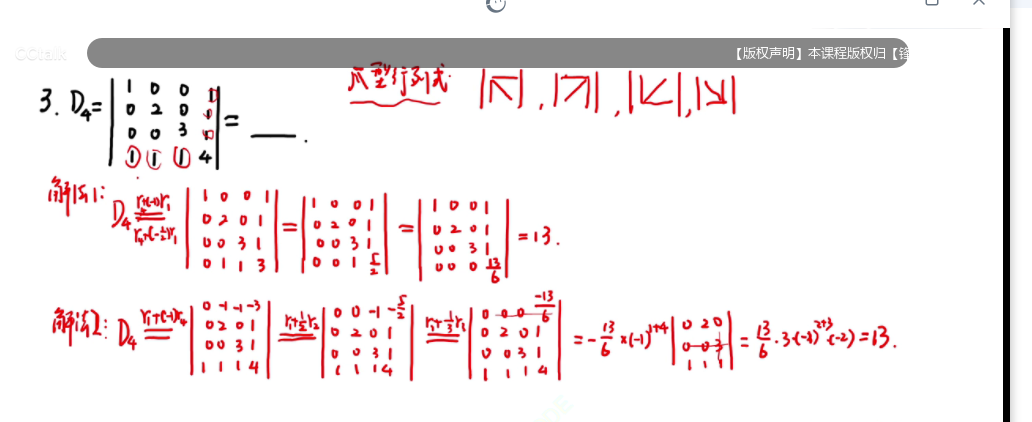 CCtalk
【版权声明】本课程版权归【锋
爪型行列式. | ↖ | , | ↗ | , | ↙ | , | ↘ |
3. D₄ = | 1 0 0 1 ; 0 2 0 1 ; 0 0 3 1 ; 1 1 1 4 | = ____ .
解法1: D₄ = (r₄+(-1)r₁, r₄+(-½)r₁) | 1 0 0 1 ; 0 2 0 1 ; 0 0 3 1 ; 0 1 1 3 | = | 1 0 0 1 ; 0 2 0 1 ; 0 0 3 1 ; 0 0 1 5/2 | = | 1 0 0 1 ; 0 2 0 1 ; 0 0 3 1 ; 0 0 0 13/6 | = 13.
解法2: D₄ = (r₁+(-1)r₄) | 0 -1 -1 -3 ; 0 2 0 1 ; 0 0 3 1 ; 1 1 1 4 | = (r₁+½r₂) | 0 0 -1 -5/2 ; 0 2 0 1 ; 0 0 3 1 ; 1 1 1 4 | = (r₁+⅓r₃) | 0 0 0 -13/6 ; 0 2 0 1 ; 0 0 3 1 ; 1 1 1 4 | = -13/6 × (-1)^(1+4) | 0 2 0 ; 0 0 3 ; 1 1 1 | = 13/6 · 3·(-1)^(2+3)·(-2) = 13.